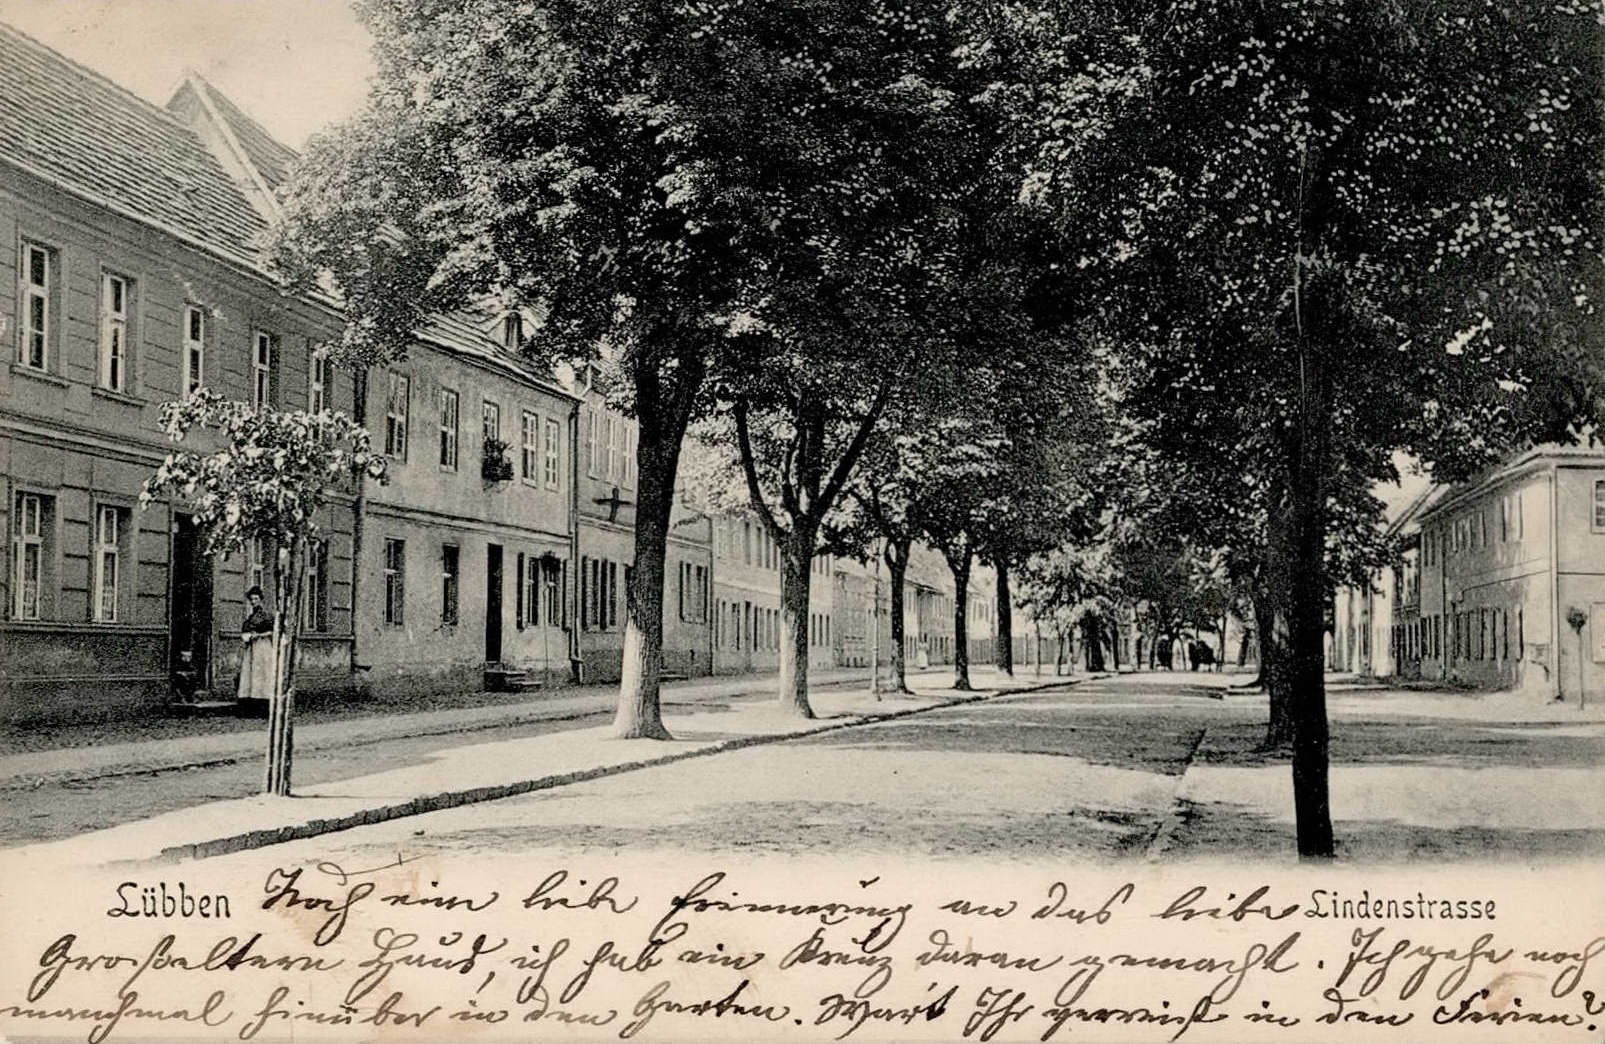 Lübben Noch eine liebe Erinnerung an das liebe Lindenstrasse
Großeltern Haus, ich hab ein Kreuz daran gemacht. Ich gehe noch
manchmal hinüber in den Garten. Wart Ihr verreist in den Ferien?